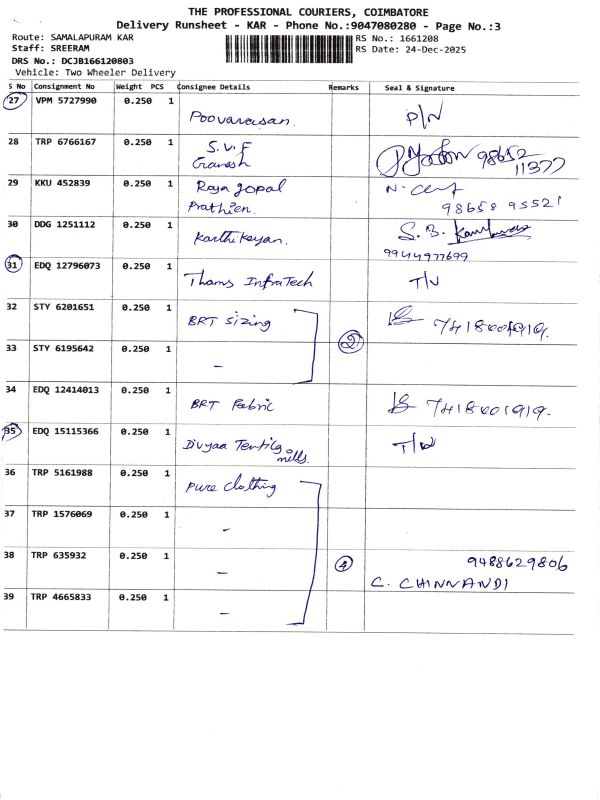 THE PROFESSIONAL COURIERS, COIMBATORE
Delivery Runsheet - KAR - Phone No.:9047080280 - Page No.:3
Route: SAMALAPURAM KAR RS No.: 1661208
Staff: SREERAM RS Date: 24-Dec-2025
DRS No.: DCJB166120803
Vehicle: Two Wheeler Delivery
S No Consignment No Weight PCS Consignee Details Remarks Seal & Signature
27 VPM 5727990 0.250 1 Poovarasan. P/N
28 TRP 6766167 0.250 1 S.V.F
Ganesh 98652
11377
29 KKU 452839 0.250 1 Raja gopal
Prathien. 98658 95521
30 DDG 1251112 0.250 1 Karthikeyan. S.B.
9944977699
31 EDQ 12796073 0.250 1 Thams InfraTech T/N
32 STY 6201651 0.250 1 BRT Sizing 7418601919.
33 STY 6195642 0.250 1 - 2
34 EDQ 12414013 0.250 1 BRT Fabric 7418601919.
35 EDQ 15115366 0.250 1 Divyaa Textile mills. T/N
36 TRP 5161988 0.250 1 Pure Clothing
37 TRP 1576069 0.250 1 -
38 TRP 635932 0.250 1 - 4 9488629806
C. CHINNANDI
39 TRP 4665833 0.250 1 -